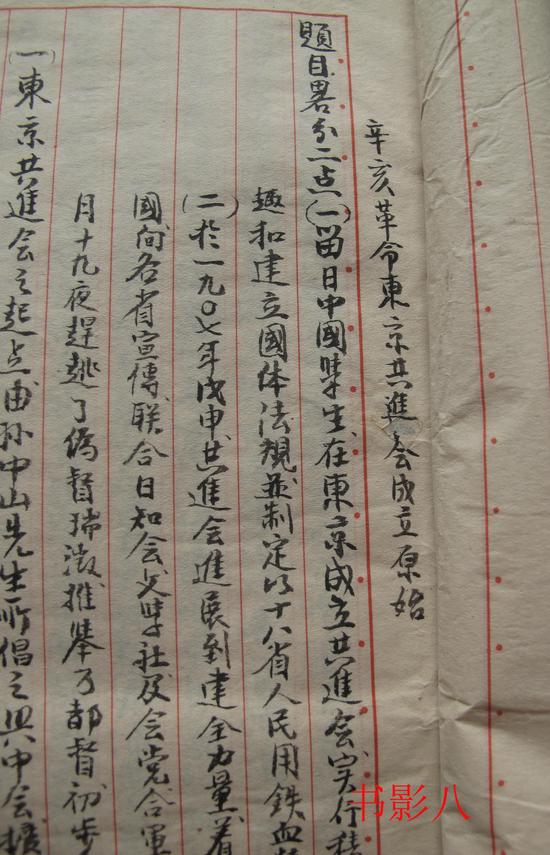 辛亥革命東京共進会成立原始
題目畧分二点(一)留日中國學生在東京成立共進会实行積
趣和建立國体法規並制定以十八省人民用鉄血
(二)於一九〇七年戊申共進会進展到建全力量着
國向各省宣傳联合日知会文學社及会党合軍
月十九夜趕逃了偽督瑞澂推举了都督初步
(一)東京共進会之起点由孫中山先生所倡之興中会擴
书影八